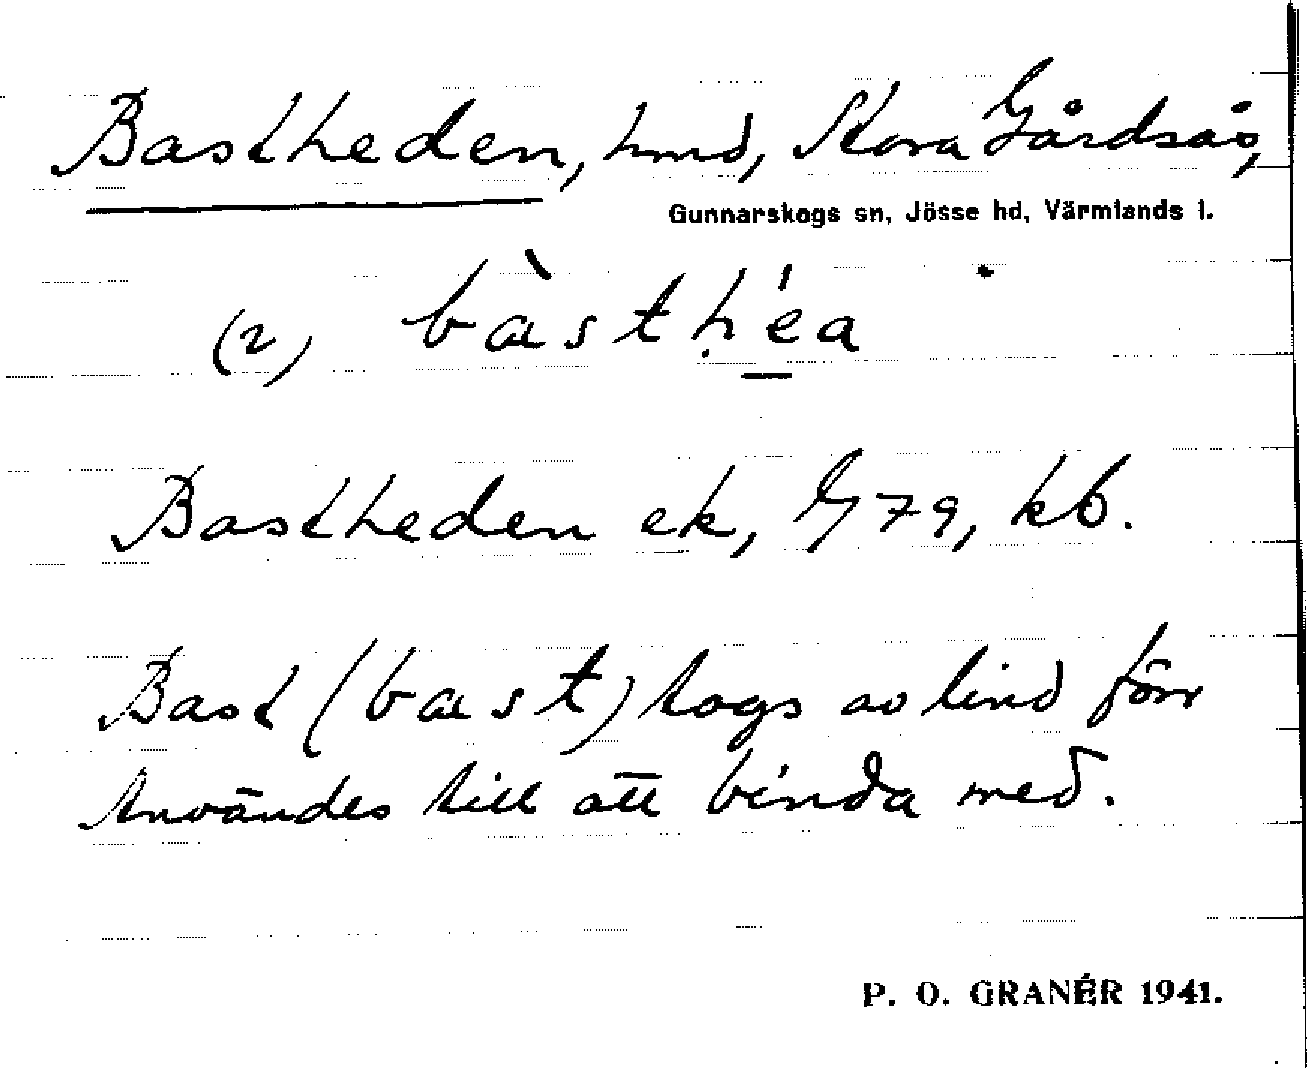 Bastheden, hmd, Stora Gårdsås,
Gunnarskogs sn, Jösse hd, Värmlands l.
(2) bàstḥé̱a
Bastheden ek, G 79, kb.
Bast (bast) togs av lind förr
Användes till att binda med.
P. O. GRANÉR 1941.